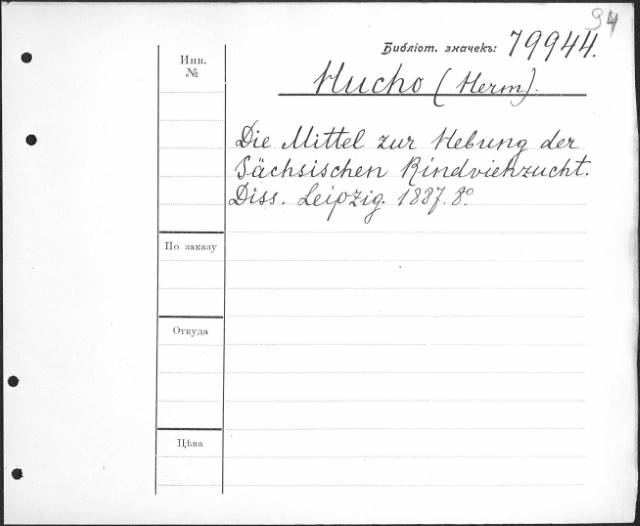 94
Библіот. значекъ: 79944.
Инв.
№
Hucho (Herm).
Die Mittel zur Hebung der
Sächsischen Rindviehzucht.
Diss. Leipzig. 1887. 8º
По заказу
Откуда
Цѣна